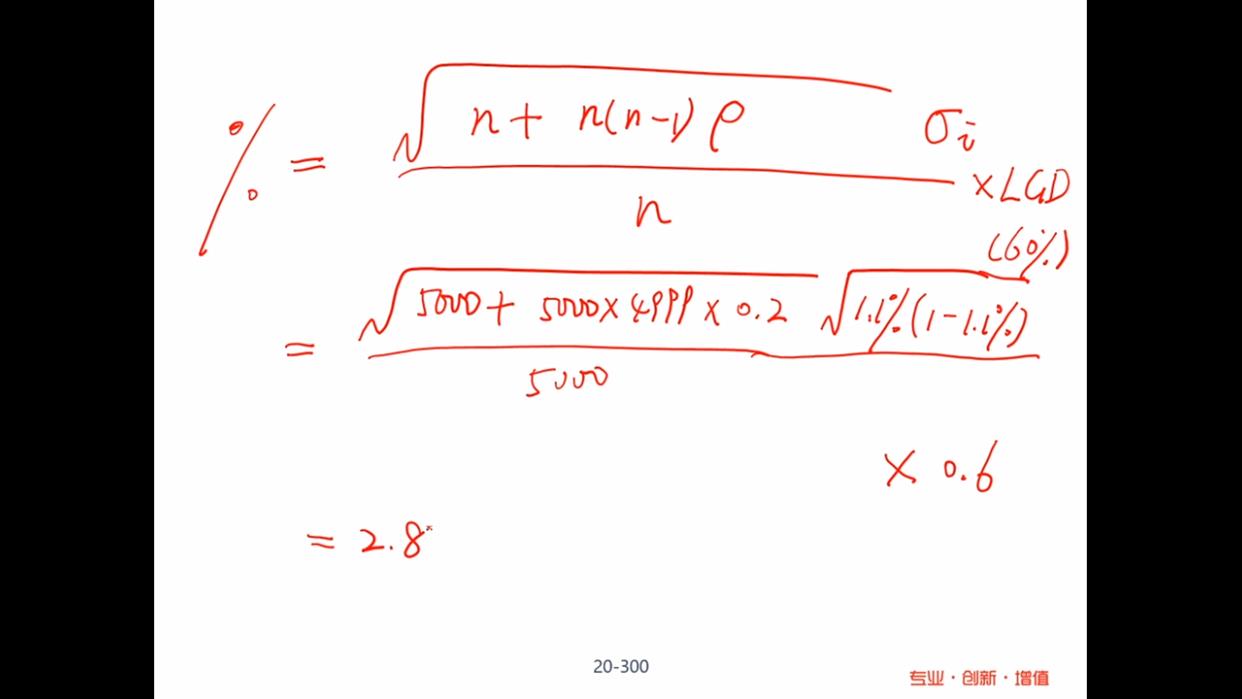 % = √(n + n(n-1)ρ) σi / n × LGD
(60%)
= √(5000 + 5000 × 4999 × 0.2) √(1.1%(1-1.1%)) / 5000
× 0.6
= 2.8
20-300
专业·创新·增值